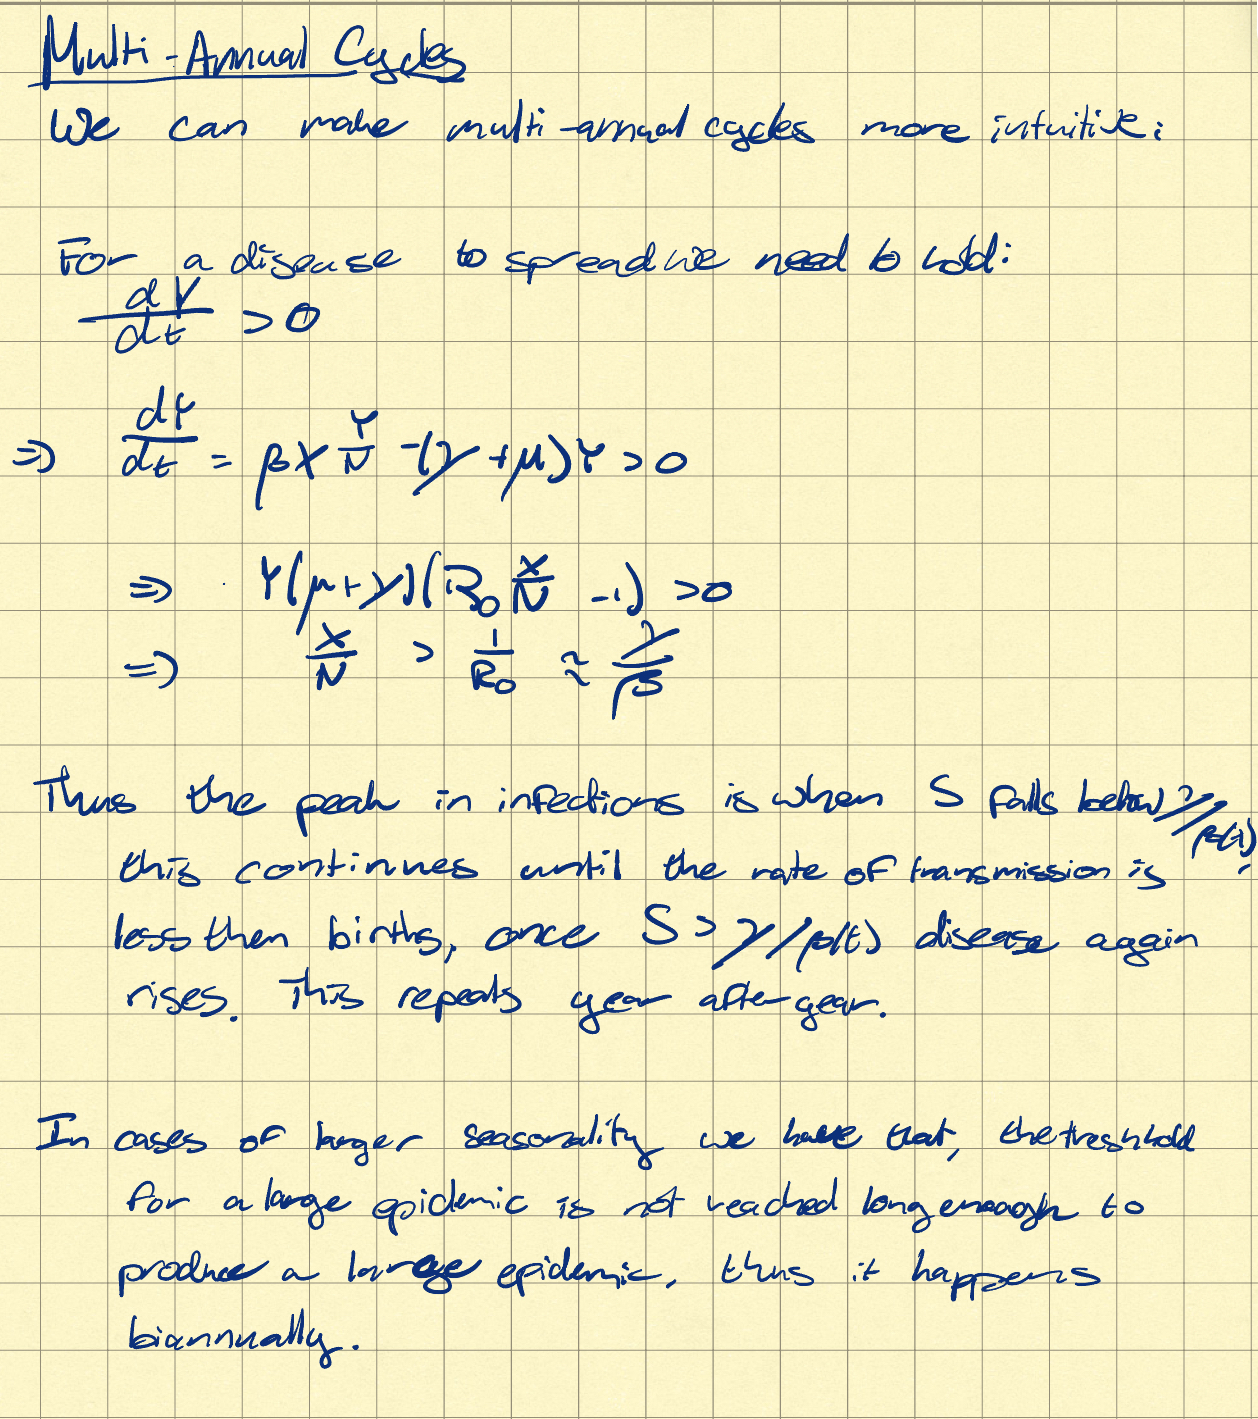 Multi-Annual Cycles
We can make multi-annual cycles more intuitive:
For a disease to spread we need to hold:
dY/dt > 0
⇒ dY/dt = βX Y/N -(γ+μ)Y > 0
⇒ Y(μ+γ)(R₀ X/N -1) > 0
⇒ X/N > 1/R₀ ≈ γ/β
Thus the peak in infections is when S falls below γ/β(t)
this continues until the rate of transmission is
less then births, once S > γ/β(t) disease again
rises. This repeats year after year.
In cases of larger seasonality we have that, the treshhold
for a large epidemic is not reached long enough to
produce a large epidemic, thus it happens
biannually.